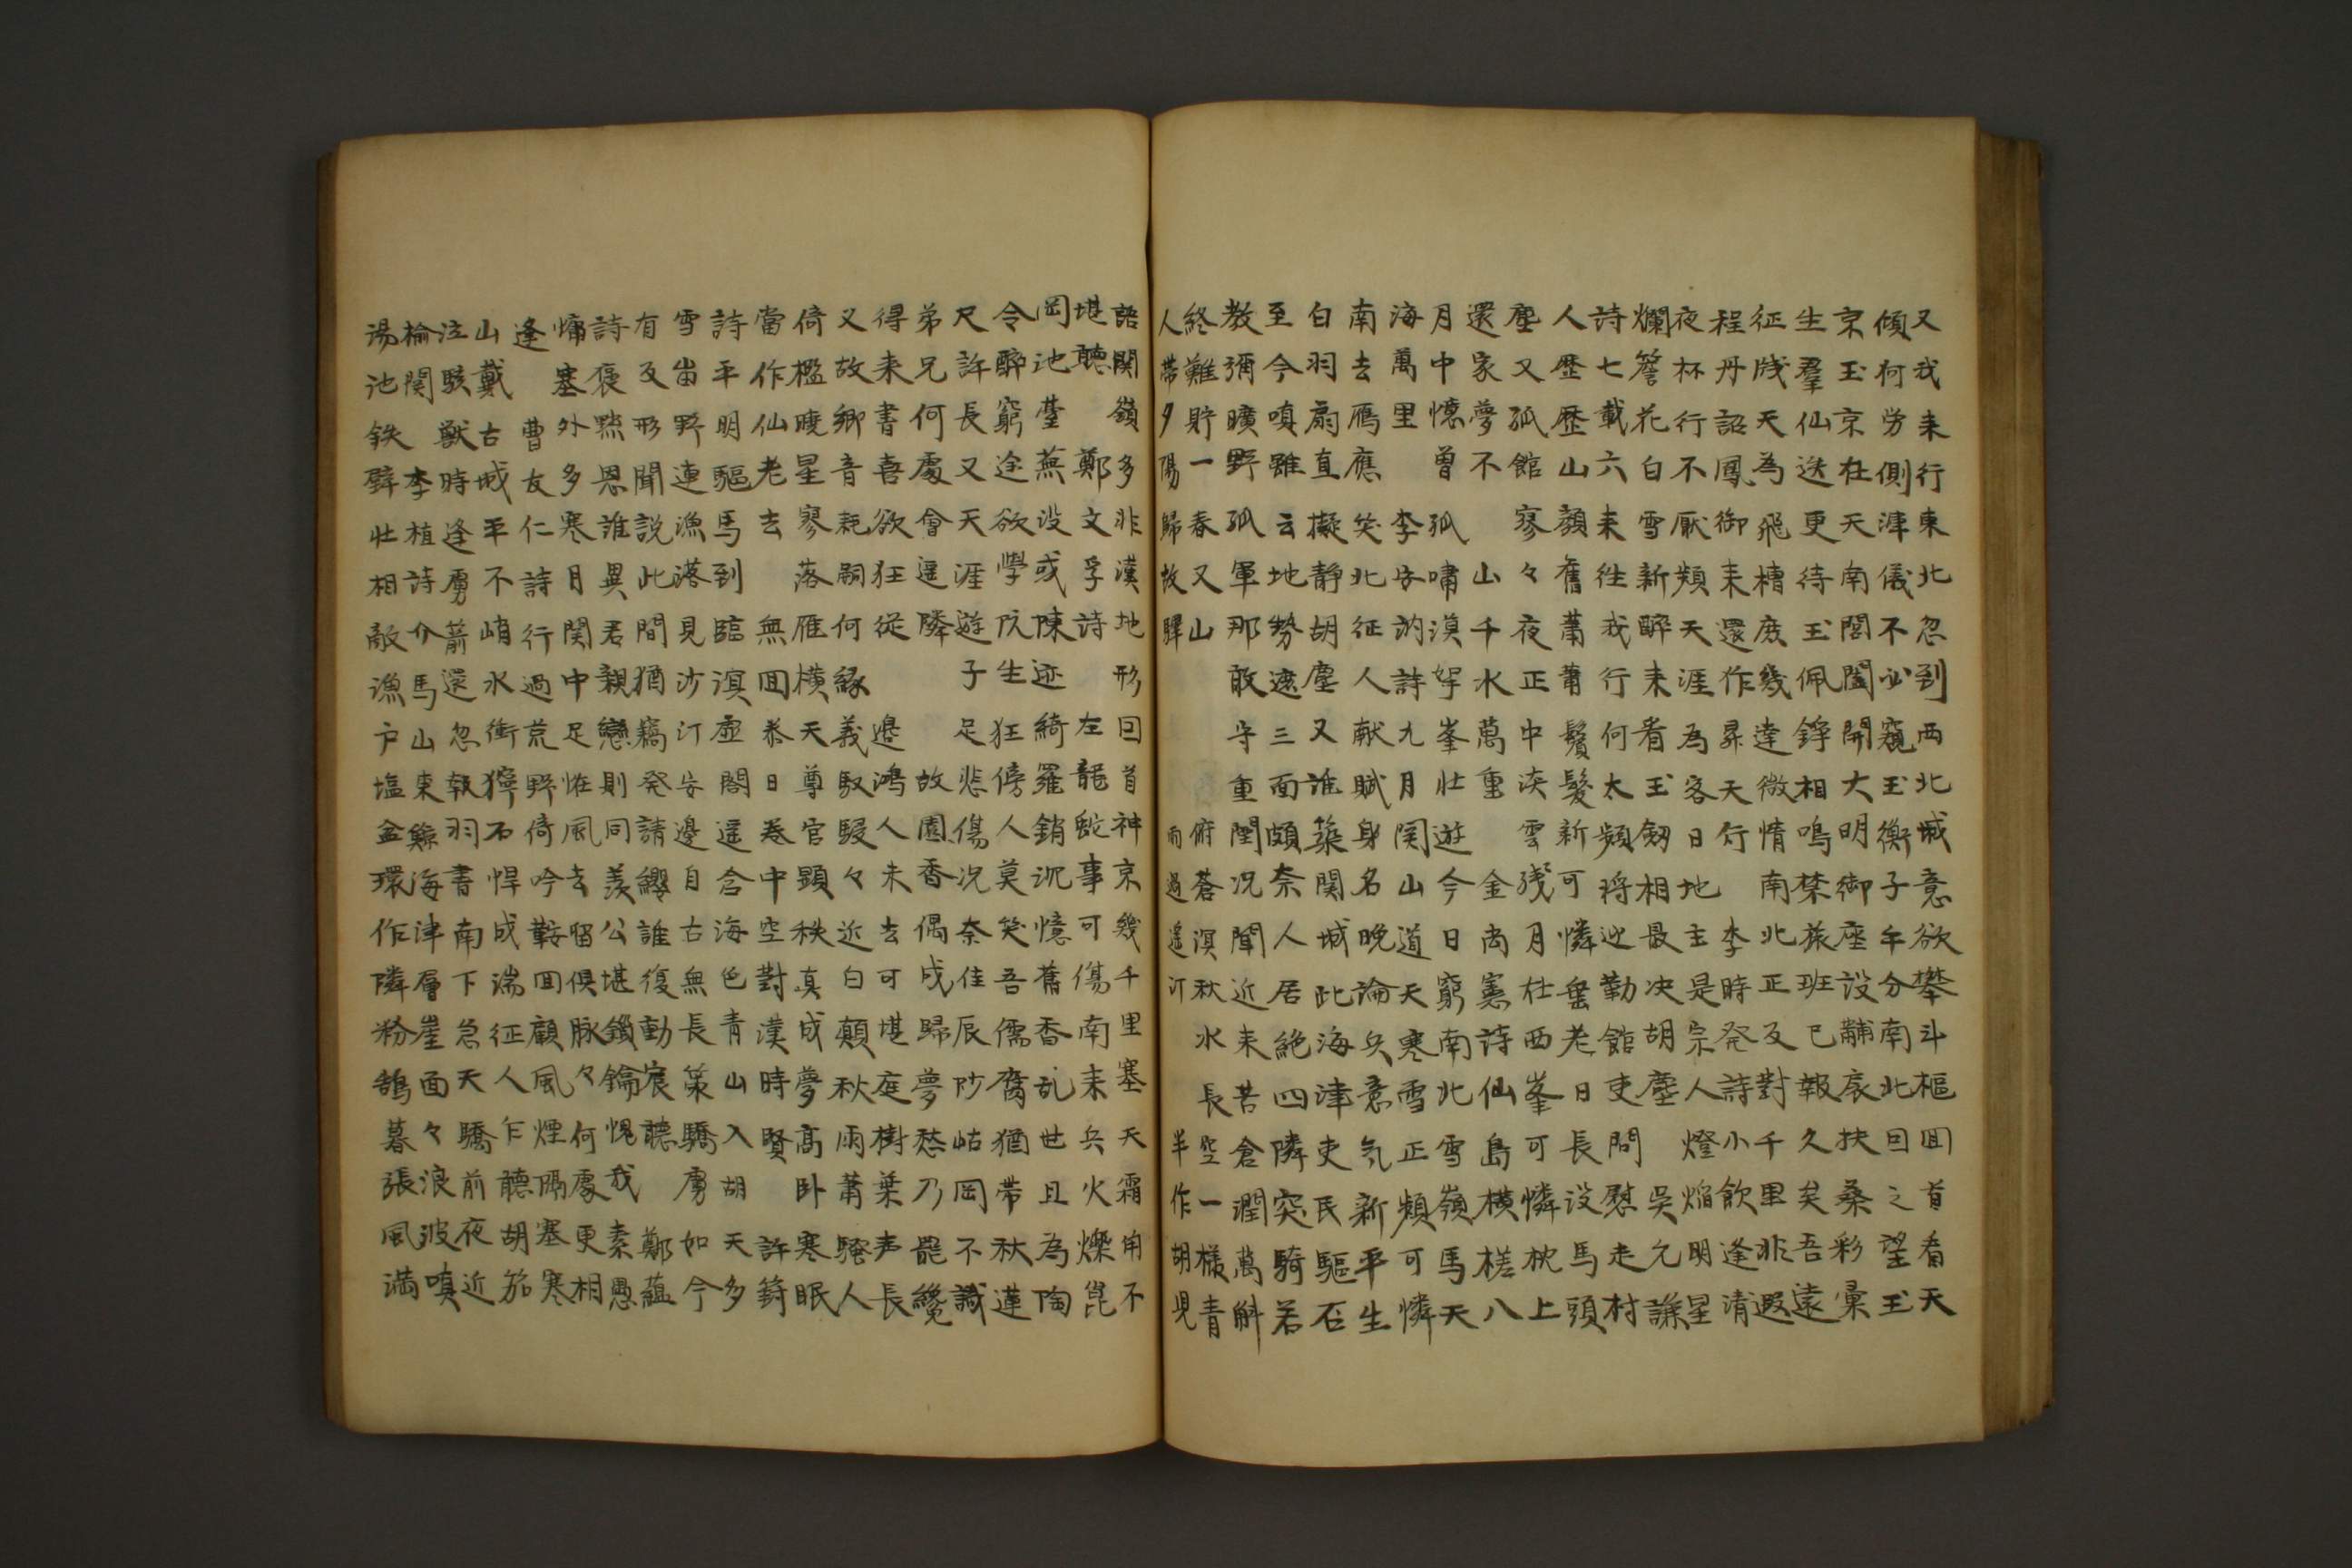 又我来行東北忽到西北城意欲攀斗樞回首看天
傾何労側津儀不必窺玉衡子午分南北回之望玉
京玉京在天南閶闔開大明御座設黼扆扶桑彩雲
生羣仙送更待玉佩錚相鳴禁旅班已報久矣吾遠
征戔天為飛槽度幾達微情南北正及對千里非遐
程丹詔鳳御来還作昇天行　李時発詩小飲逢清
夜杯行不厭頻天涯為客日地主是宗人燈焔明星
爛簷花白雪新醉来看玉劒相最決胡塵　吳允謙
詩七載六来徃我行何太頻将迎勤館吏問慰走村
人歴歴山顏舊蕭蕭鬢髮新可憐無老日長設馬頭
塵又孤館寥々夜正中淡雲殘月在西峯可憐枕上
還家夢不　山千水萬重　金尚憲詩仙島横槎八
月中懷曽　孤嘯漠拏峯壮遊今日窮南北雪嶺馬天
海萬里　李安訥詩九月関山道天寒雪正頻可憐
南去鴈應笑北征人献賦身名晩論兵意氣新平生
白羽扇直擬静胡塵又誰築関城此海津吏民驅石
至今嗔雖云地勢遮三面頗奈人居絶四隣突騎若
教彌曠野孤軍那敢守重閏況聞近来苦倉潤萬斛
終難貯一春又山　俯蒼溟秋水長空一様青
人帯夕陽歸故驛　雨過遙汀　半作胡児
語関嶺多非漢地形回首神京幾千里塞天霜角不
堪聽　鄭文孚詩　左龍蛇事可傷南来兵火爍崑
岡池臺蕪没或陳迹綺羅銷沉憶舊香乱世且為陶
令醉窮途欲學阮生狂傍人莫笑吾儒腐猶帯秋蓮
尺許長又天涯遊子足悲傷況奈佳辰陟岵岡不識
弟兄何處會遥隣　故園香偶成歸夢愁乃罷纔
得来書喜欲狂從　邊鴻人未去可堪庭樹葉声長
又故郷音耗嗣何縁義馭駸々近白顛秋雨蕭騷人
倚檻曉星寥落雁横天尊官顕秩真成夢高臥寒眠
當作仙老去　無回恭日巻中空對漢時賢　許篈
詩平明驅馬到臨溟虛閣遥含海色青山入胡天多
雪出野連漁港見沙汀安邊自古無長策驕虜如今
有及形聞說此間猶竊発請纓誰復動宸聽　鄭蘊
詩褒黙恩誰異君親戀則同羨公堪鎖鑰愧我素愚
慵塞外多寒月関中足悵風去留倶脉々何處更相
逢　曹友仁詩行過荒野倚吟鞍回顧風煙隔塞寒
山戴古城平不峭水衝獰石悍成湍征人乍聽胡笳
泣駭獸時逢虜箭還忽報羽書南下急天驕前夜近
楡関　李植詩介馬山東鯨海津層崖面々浪波嗔
湯池鉄壁壮相敵漁户塩盆環作隣粉鵠暮張風満